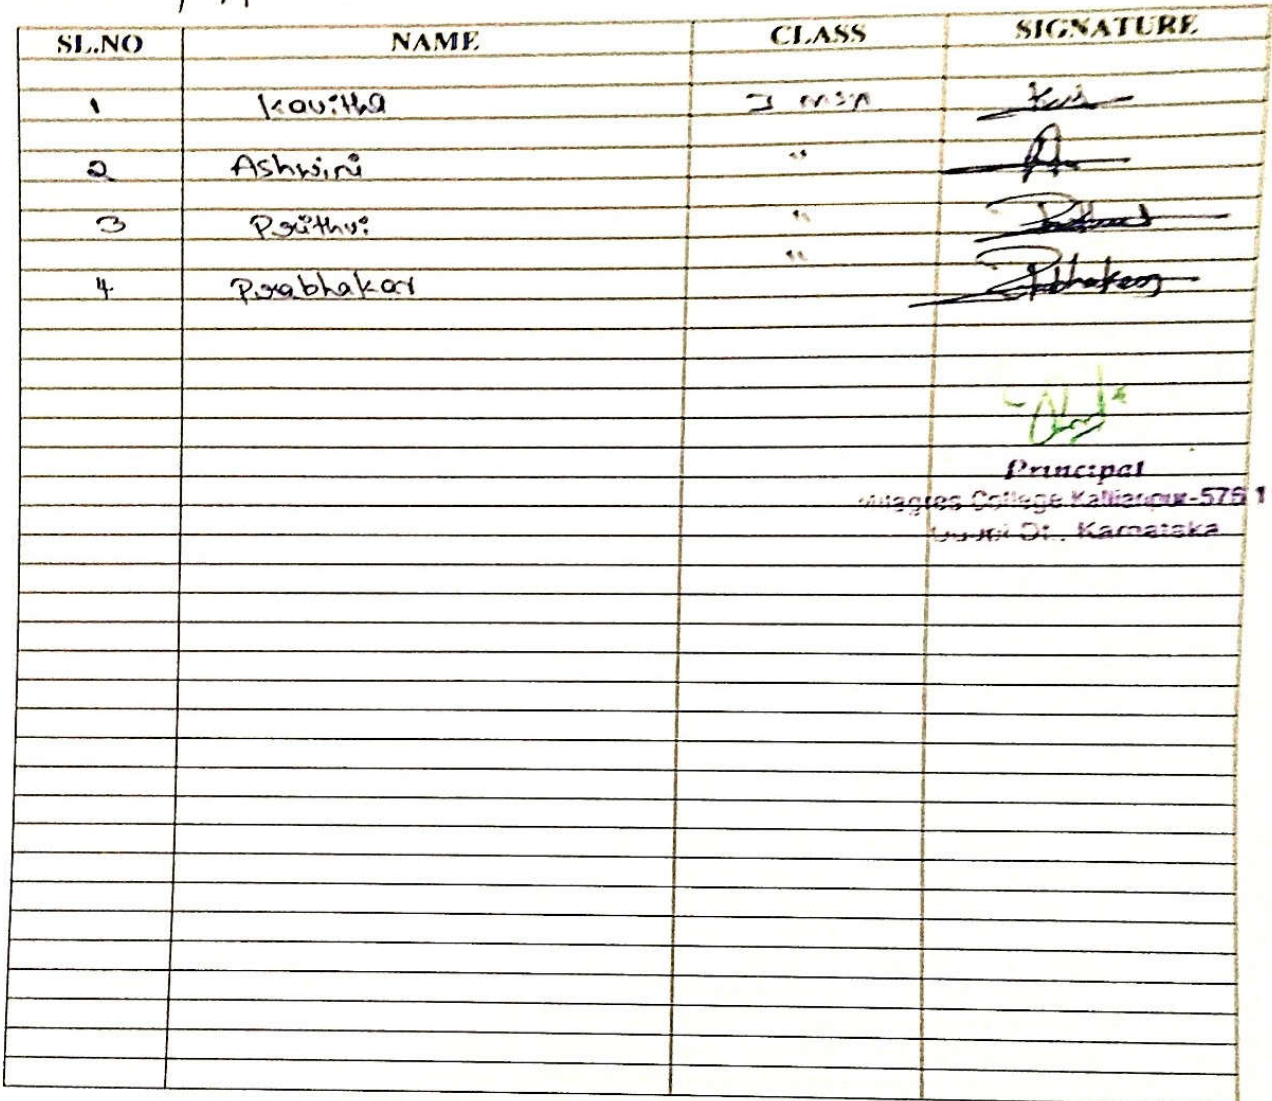 SL.NO NAME CLASS SIGNATURE
1 Kavitha I
2 Ashwini "
3 Prithvi "
4. Prabhakar "
Principal
Milagres College Kallianpur-576 1
Udupi Dt., Karnataka